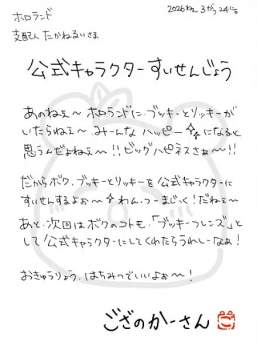 2026ねん 3がつ 24にち
ホロランド
支配人 たかねるいさま
公式キャラクターすいせんじょう
あのねぇ〜 ホロランドに ブッキーとリッキーが
いたらねぇ〜 みーんな ハッピー☆になると
思うんだよねぇ〜!!ビッグハピネスさぁ〜!!
だからボク、ブッキーとリッキーを公式キャラクターに
すいせんするよぉ〜☆わん・つー・まじっく!だねぇ〜
あと、次回はボクのコトも、「ブッキーフレンズ」と
して公式キャラクターにしてくれたらうれしーなぁ!
おきゅうりょう、はちみつでいいよぉ〜!
ござのかーさん